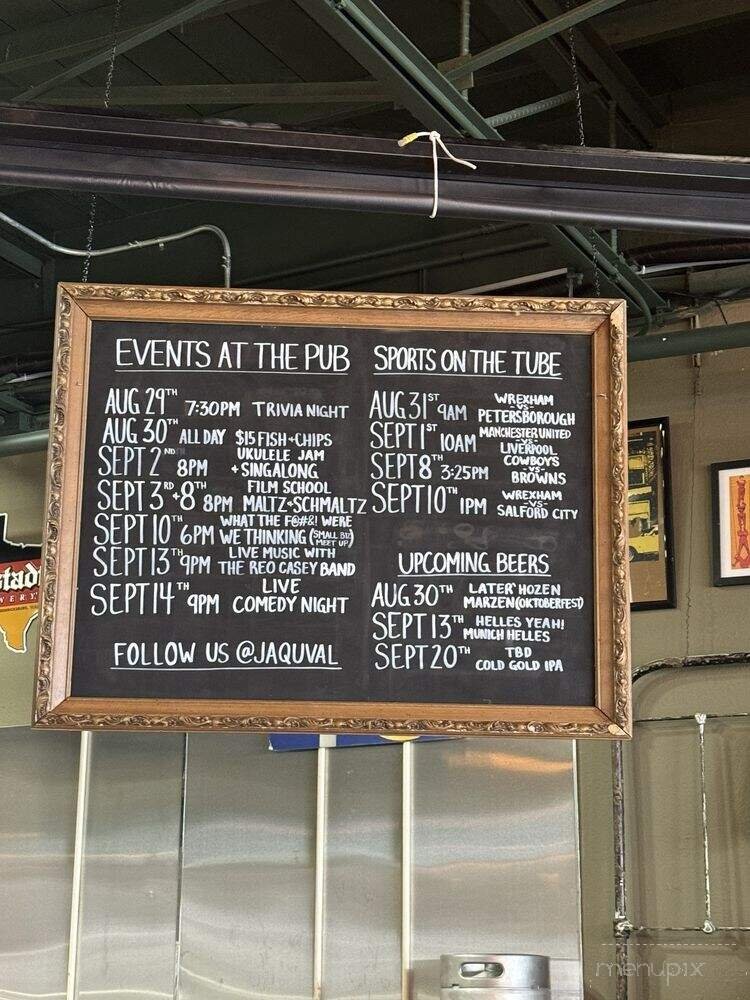 EVENTS AT THE PUB
AUG 29TH 7:30PM TRIVIA NIGHT
AUG 30TH ALL DAY $15 FISH+CHIPS
SEPT 2ND 8PM UKULELE JAM
+SINGALONG
SEPT 3RD +8TH 8PM FILM SCHOOL
MALTZ+SCHMALTZ
SEPT 10TH 6PM WHAT THE F@#&! WERE
WE THINKING (SMALL BIZ
MEET UP)
SEPT 13TH 9PM LIVE MUSIC WITH
THE REO CASEY BAND
SEPT 14TH 9PM LIVE
COMEDY NIGHT
FOLLOW US @JAQUVAL
SPORTS ON THE TUBE
AUG 31ST 9AM WREXHAM
-VS-
PETERSBOROUGH
SEPT 1ST 10AM MANCHESTER UNITED
-VS-
LIVERPOOL
SEPT 8TH 3:25PM COWBOYS
-VS-
BROWNS
SEPT 10TH 1PM WREXHAM
-VS-
SALFORD CITY
UPCOMING BEERS
AUG 30TH LATER'HOZEN
MARZEN(OKTOBERFEST)
SEPT 13TH HELLES YEAH!
MUNICH HELLES
SEPT 20TH TBD
COLD GOLD IPA
menupix